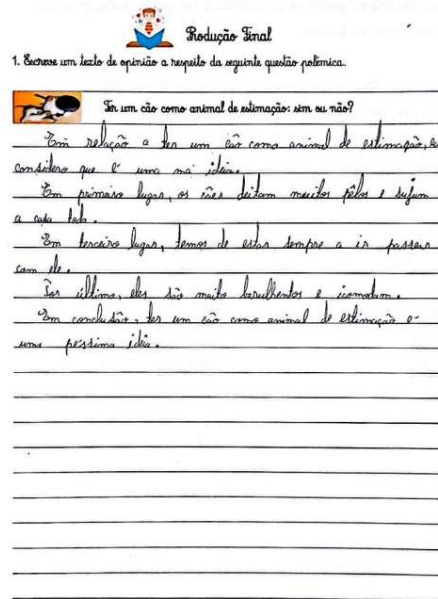 Produção Final
1. Escreve um texto de opinião a respeito da seguinte questão polémica.
Ter um cão como animal de estimação: sim ou não?
Em relação a ter um cão como animal de estimação, eu
considero que é uma má ideia.
Em primeiro lugar, os cães deitam muitos pêlos e sujam
a casa toda.
Em terceiro lugar, temos de estar sempre a ir passear
com ele.
Por último, eles são muito barulhentos e icomodam.
Em conclusão, ter um cão como animal de estimação é
uma péssima ideia.